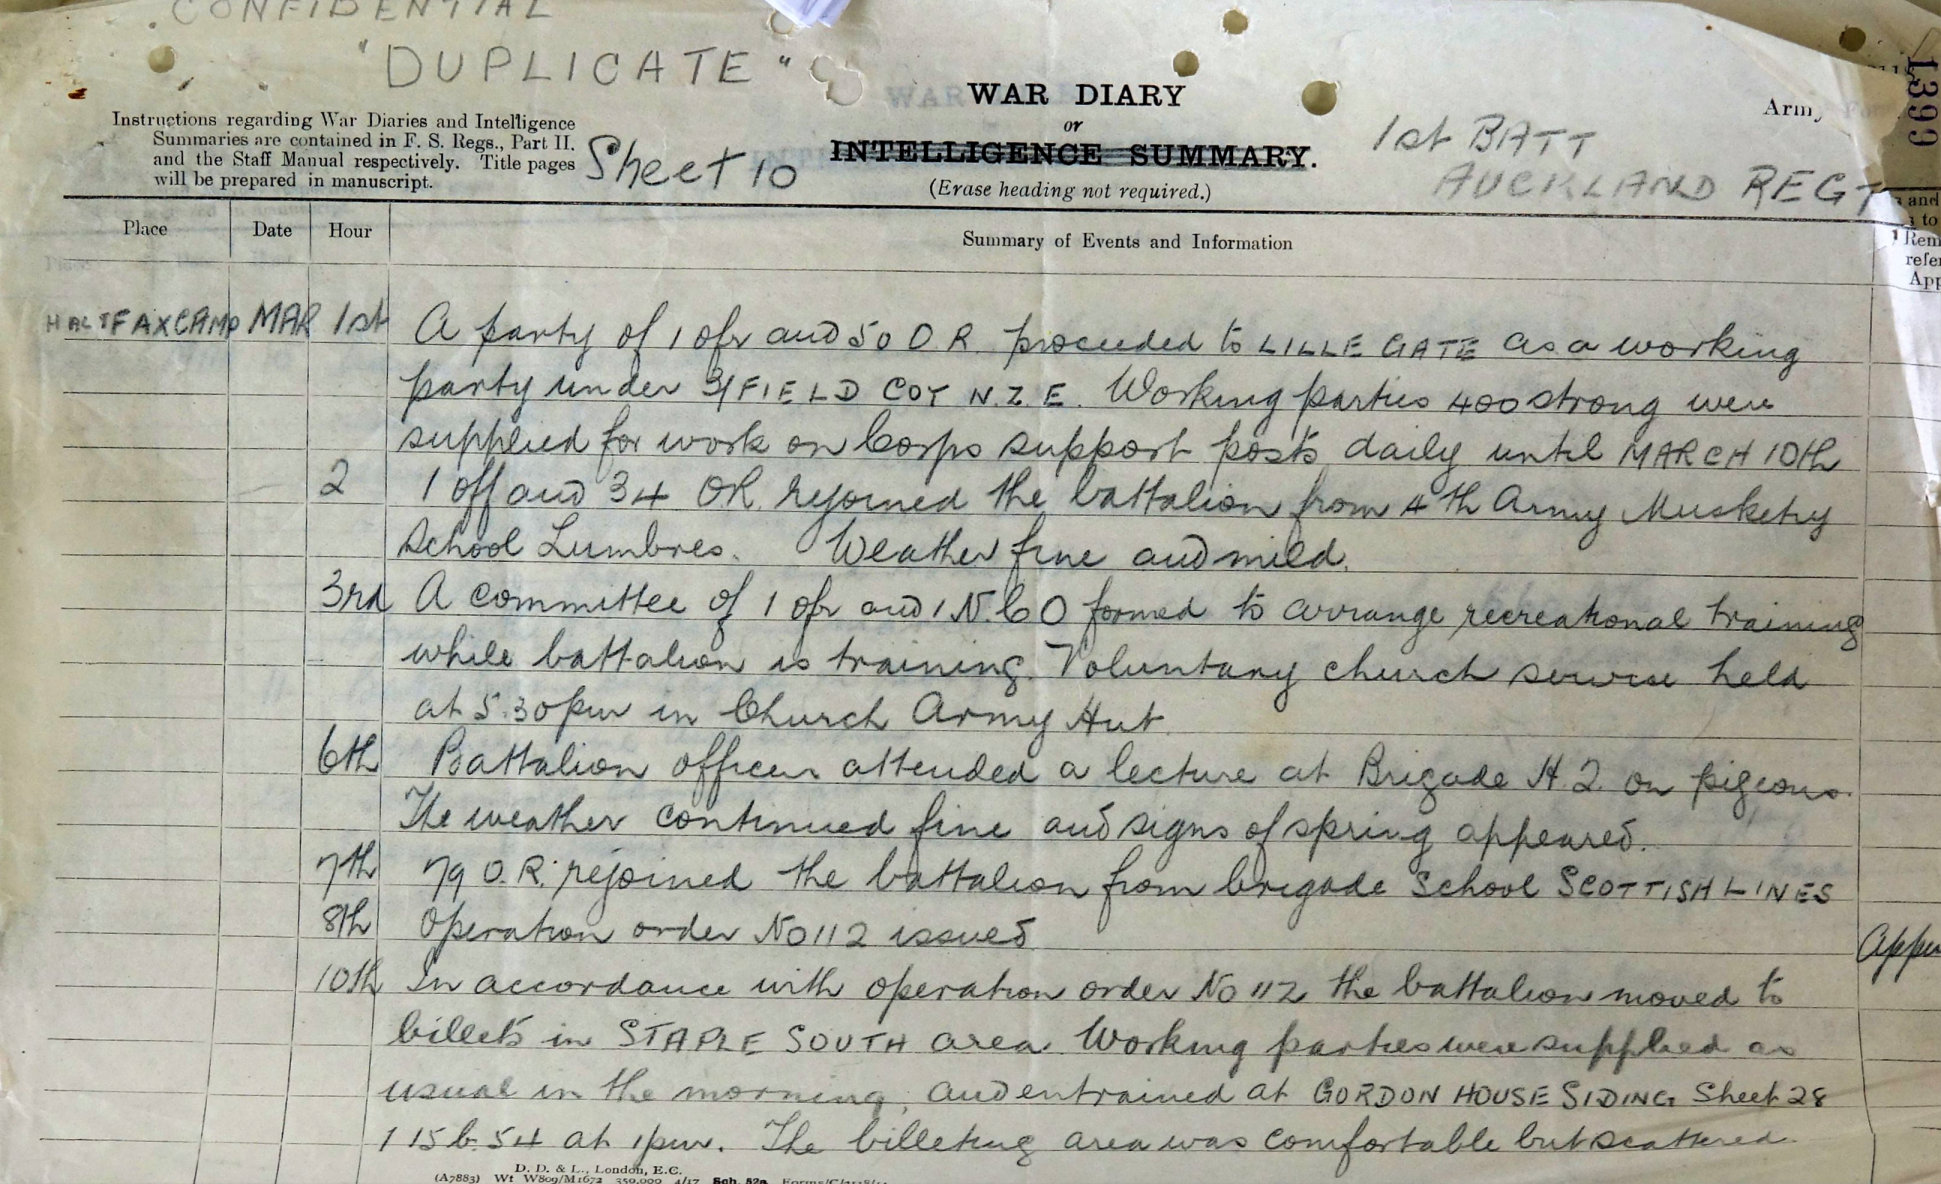 CONFIDENTIAL
"DUPLICATE"
WAR DIARY
or
INTELLIGENCE SUMMARY.
(Erase heading not required.)
Instructions regarding War Diaries and Intelligence
Summaries are contained in F. S. Regs., Part II.
and the Staff Manual respectively. Title pages
will be prepared in manuscript.
Sheet 10
Army
1399
1st BATT
AUCKLAND REGT
Place Date Hour Summary of Events and Information
and
to
Rem
refe
App
HALIFAX CAMP MAR 1st A party of 1 ofr and 50 O.R. proceeded to LILLE GATE as a working
party under 3/FIELD COY N.Z.E. Working parties 400 strong were
supplied for work on Corps support posts daily until MARCH 10th
2 1 off and 34 OR. rejoined the battalion from 4th Army Musketry
School Lumbres. Weather fine and mild.
3rd A committee of 1 ofr and 1 N.C O formed to arrange recreational training
while battalion is training. Voluntary church service held
at 5.30pm in Church Army Hut
6th Battalion officers attended a lecture at Brigade H.Q. on pigeons.
The weather continued fine and signs of spring appeared.
7th 79 O.R. rejoined the battalion from brigade School SCOTTISH LINES
8th Operation order No 112 issued
Appen
10th In accordance with operation order No 112 the battalion moved to
billets in STAPLE SOUTH area. Working parties were supplied as
usual in the morning, and entrained at GORDON HOUSE SIDING Sheet 28
I 15 b. 54 at 1pm. The billeting area was comfortable but scattered
D. D. & L., London, E.C.
(A7883) Wt W809/M1672 350,000 4/17 Sch. 52a